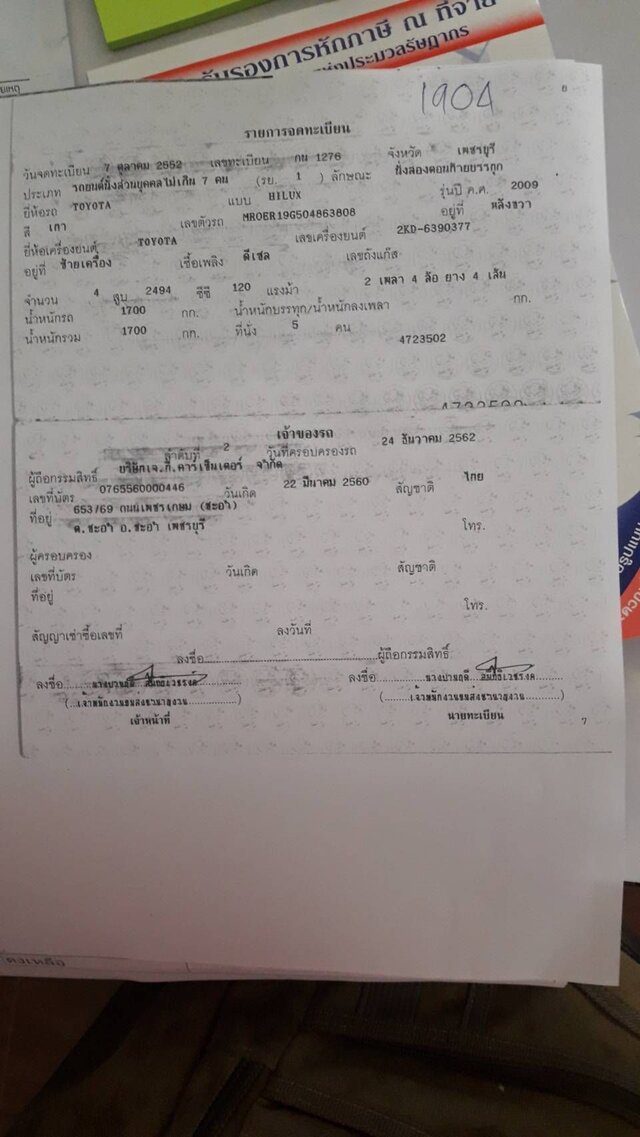 รับรองการหักภาษี ณ ที่จ่าย
แห่งประมวลรัษฎากร
1904
6
รายการจดทะเบียน
วันจดทะเบียน 7 ตุลาคม 2552 เลขทะเบียน กน 1276 จังหวัด เพชรบุรี
ประเภท รถยนต์นั่งส่วนบุคคลไม่เกิน 7 คน (รย. 1 ) ลักษณะ นั่งสองตอนท้ายบรรทุก
ยี่ห้อรถ TOYOTA แบบ HILUX รุ่นปี ค.ศ. 2009
สี เทา เลขตัวรถ MROER19G504863808 อยู่ที่ หลังขวา
ยี่ห้อเครื่องยนต์ TOYOTA เลขเครื่องยนต์ 2KD-6390377
อยู่ที่ ซ้ายเครื่อง เชื้อเพลิง ดีเซล เลขถังแก๊ส
จำนวน 4 สูบ 2494 ซีซี 120 แรงม้า 2 เพลา 4 ล้อ ยาง 4 เส้น
น้ำหนักรถ 1700 กก. น้ำหนักบรรทุก/น้ำหนักลงเพลา กก.
น้ำหนักรวม 1700 กก. ที่นั่ง 5 คน
4723502
เจ้าของรถ
ลำดับที่ 2 วันที่ครอบครองรถ 24 ธันวาคม 2562
ผู้ถือกรรมสิทธิ์ บริษัทเจ.ที.คาร์เซ็นเตอร์ จำกัด
เลขที่บัตร 0765560000446 วันเกิด 22 มีนาคม 2560 สัญชาติ ไทย
ที่อยู่ 653/69 ถนนเพชรเกษม (ชะอำ)
ต.ชะอำ อ.ชะอำ เพชรบุรี โทร.
ผู้ครอบครอง
เลขที่บัตร วันเกิด สัญชาติ
ที่อยู่
โทร.
สัญญาเช่าซื้อเลขที่ ลงวันที่
ลงชื่อ ผู้ถือกรรมสิทธิ์
ลงชื่อ ลงชื่อ
(เจ้าพนักงานขนส่งชำนาญงาน) (เจ้าพนักงานขนส่งชำนาญงาน)
เจ้าหน้าที่ นายทะเบียน
7
คงเหลือ